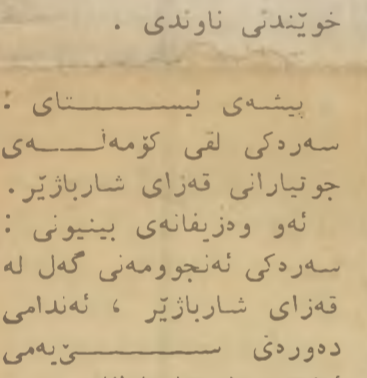 خوێندنی ناوندی .
پیشەی ئیستای :
سەردکی لقی کۆمەڵەی
جوتیارانی قەزای شارباژێر.
ئەو ودزیفانەی بینیونی :
سەردکی ئەنجوومەنی گەل لە
قەزای شارباژێر ، ئەندامی
دەوردی سێیەمی